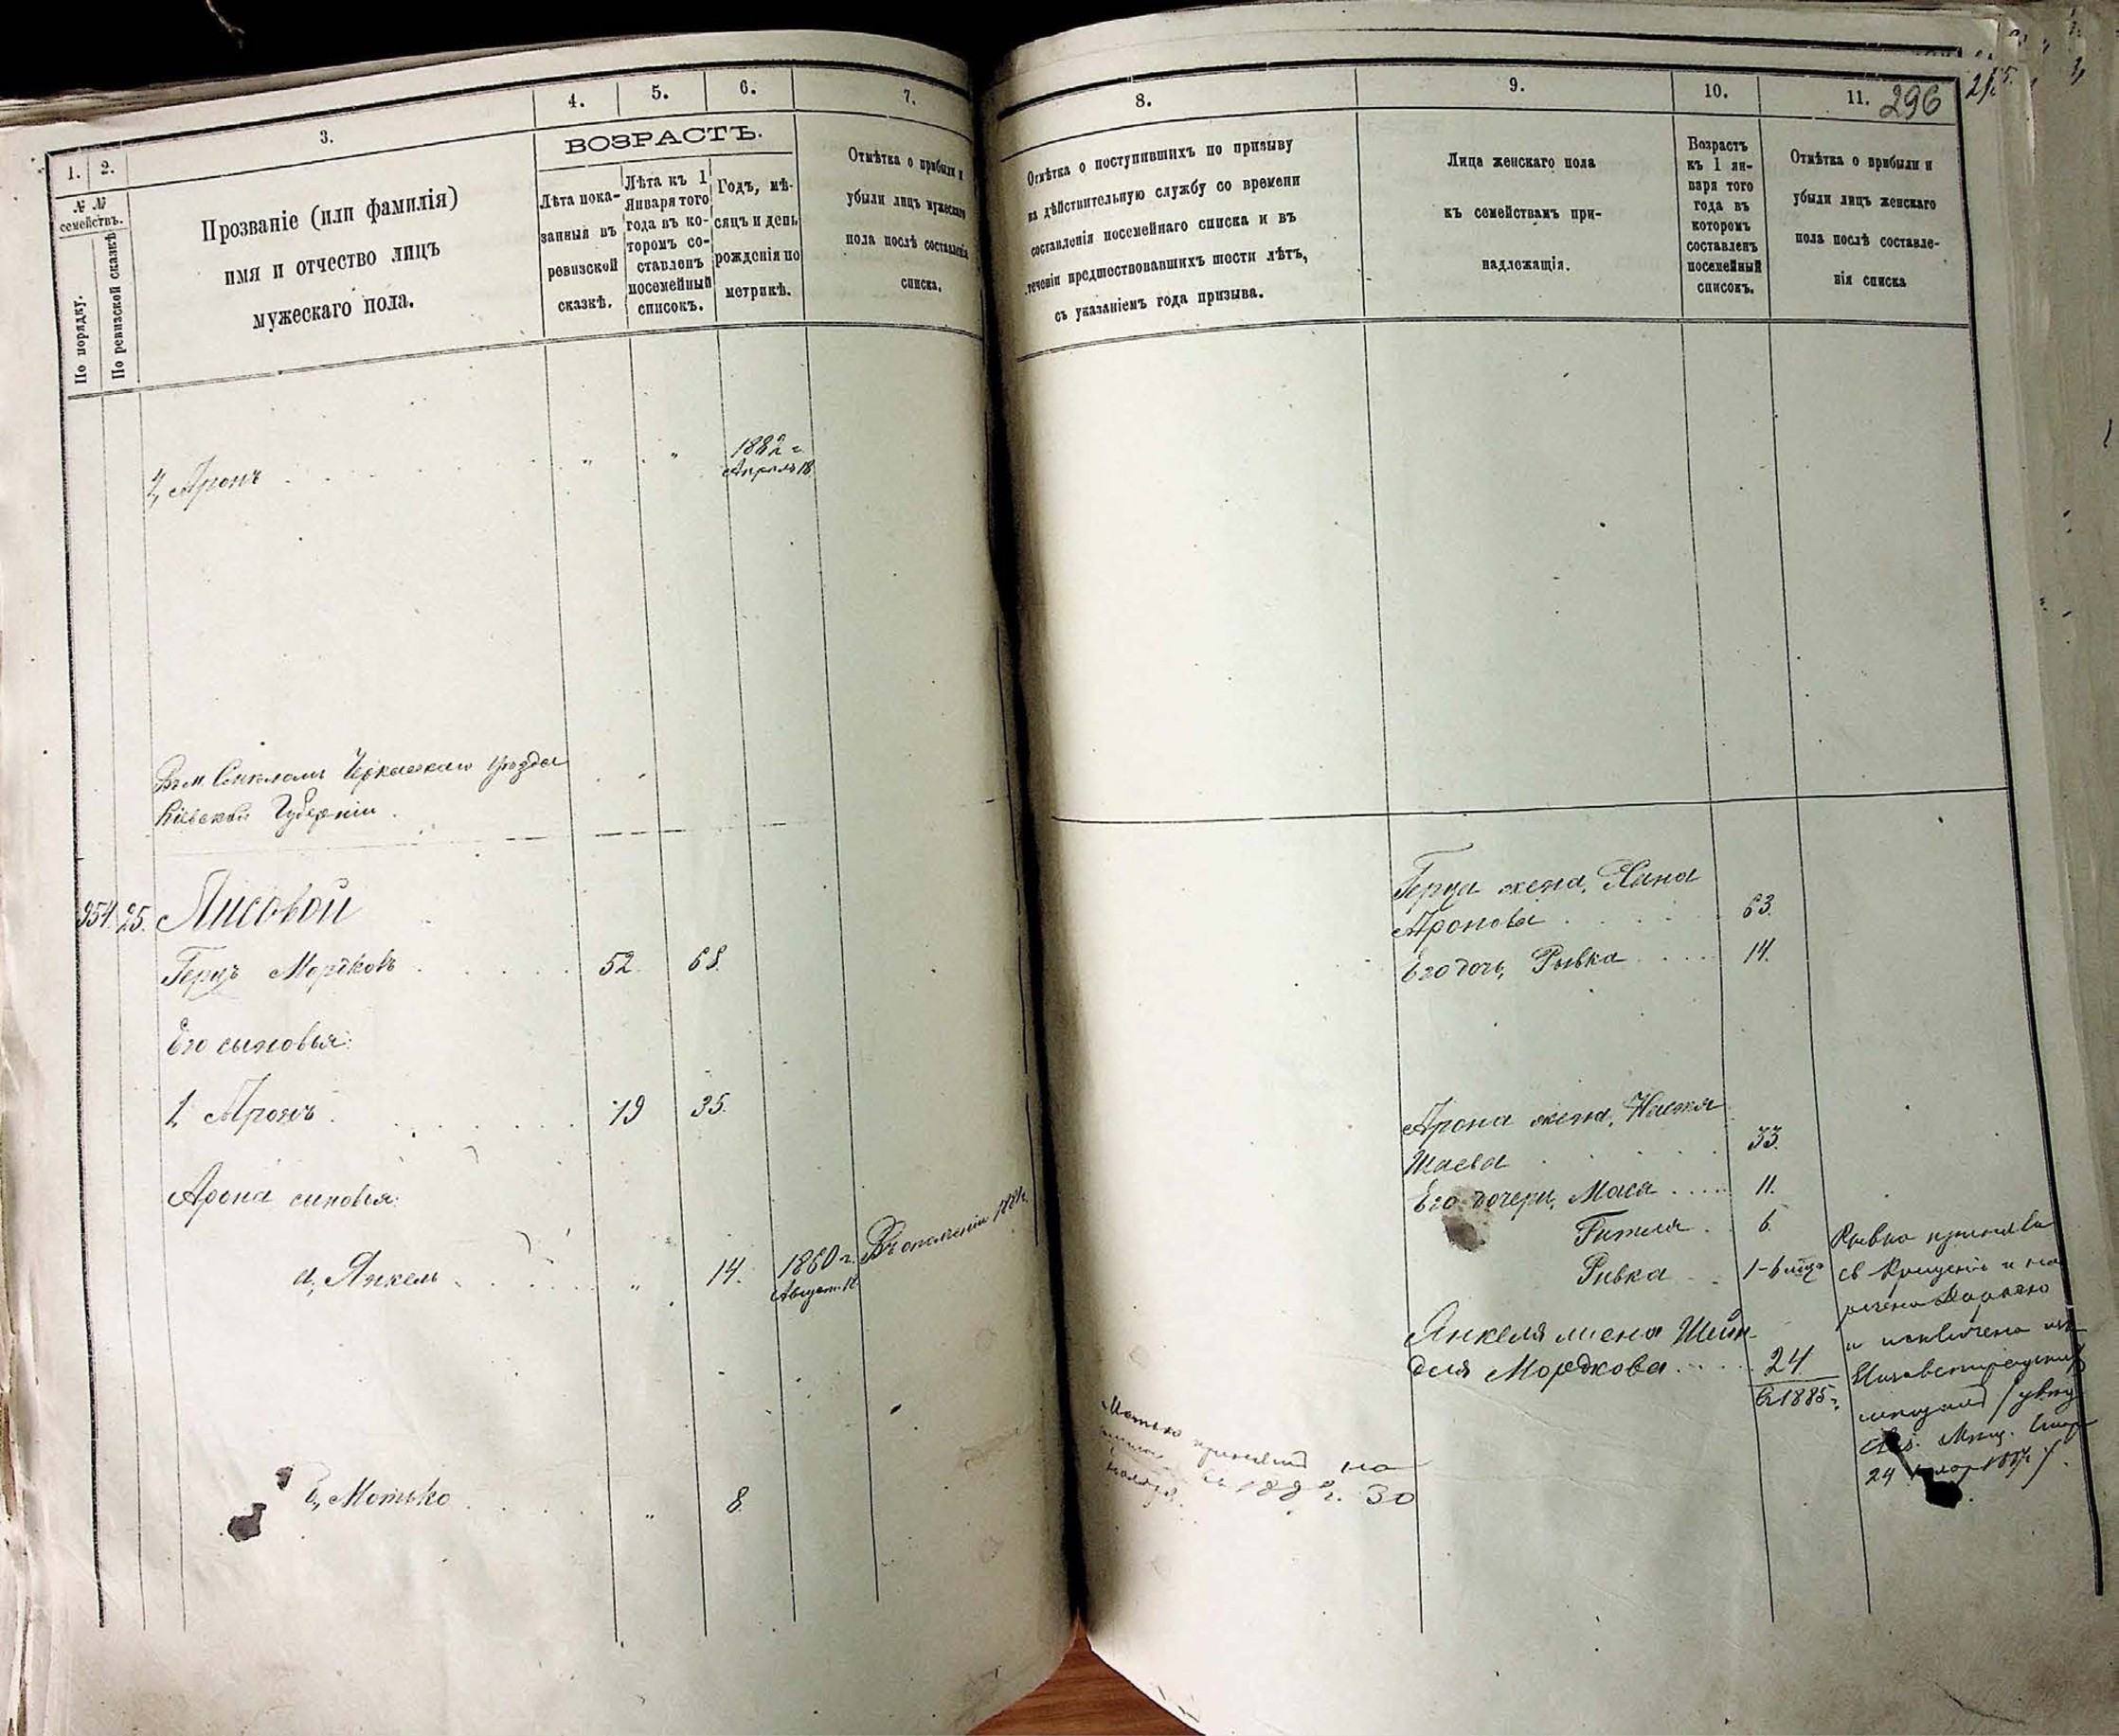 1.
2.
3.
4.
5.
6.
7.
№ №
семействъ.
По порядку.
По ревизской сказкѣ
Прозваніе (или фамилія)
имя и отчество лицъ
мужескаго пола.
ВОЗРАСТЪ.
Лѣта пока-
занныя въ
ревизской
сказкѣ.
Лѣта къ 1
Января того
года въ ко-
торомъ со-
ставленъ
посемейный
списокъ.
Годъ, мѣ-
сяцъ и день
рожденія по
метрикѣ.
Отмѣтка о прибыли и
убыли лицъ мужескаго
пола послѣ составленія
списка.
Аронъ
1882 г.
Апрель 18
Черкаскаго уѣзда
Кіевской Губерніи.
354. 25. Лисовой
Герцъ Мордковъ 52. 68.
Его сыновья:
1, Аронъ 19 35.
Арона сыновья:
а, Янкель „ 14. 1860 г.
Август.
1881г.
б, Мотько „ 8.
8.
9.
10.
11.
296
Отмѣтка о поступившихъ по призыву
на дѣйствительную службу со времени
составленія посемейнаго списка и въ
теченіи предшествовавшихъ шости лѣтъ,
съ указаніемъ года призыва.
Лица женскаго пола
къ семействамъ при-
надложащія.
Возрастъ
къ 1 ян-
варя того
года въ
которомъ
составленъ
посемейный
списокъ.
Отмѣтка о прибыли и
убыли лицъ женскаго
пола послѣ составле-
нія списка
Герца жена, Хана
Аронова 63.
Его дочь, Рывка 14.
Арона жена,
Шаева 33.
Его дочери, Мася 11.
Гитля 6.
Ривка
Янкеля жена Шейн-
деля Мордкова 24
въ 1885 г.
Мотько принятъ на
30
Рывка приняла
св Крещеніе и на
речена
и исключена изъ
24